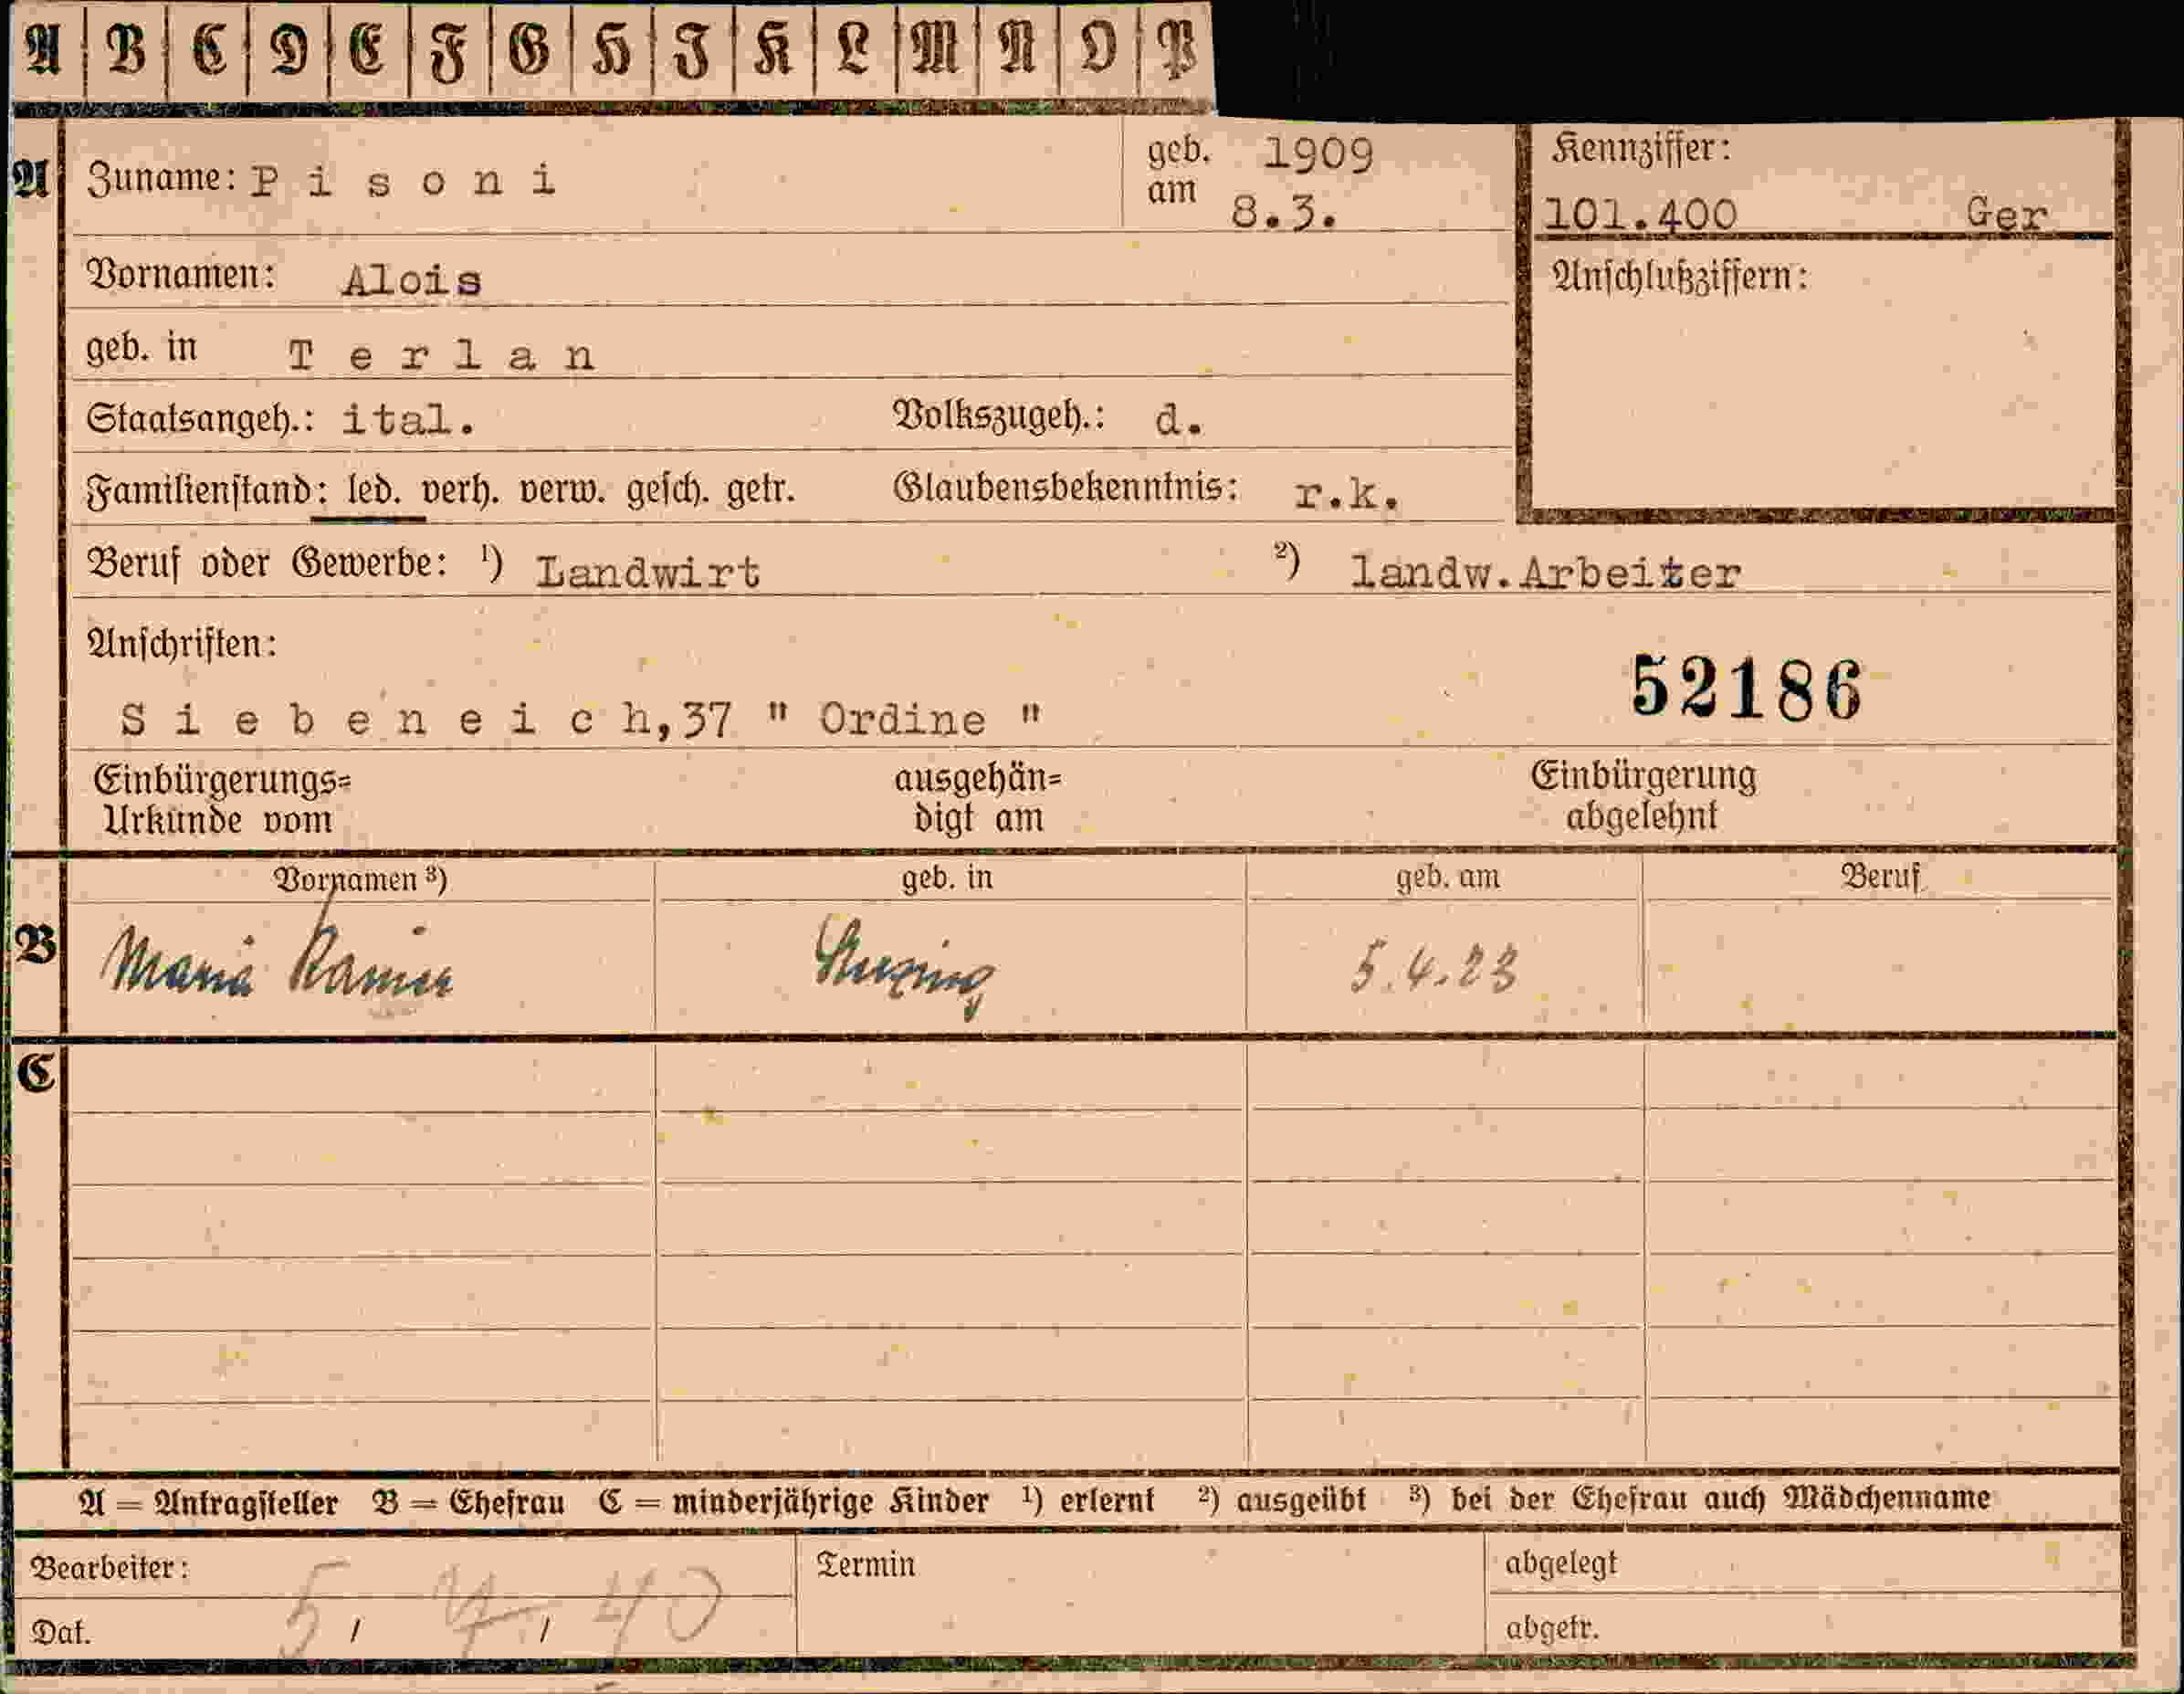 A B C D E F G H I K L M N O P
A Zuname: Pisoni geb. am 1909 8.3. Kennziffer:
101.400 Ger
Vornamen: Alois Anschlußziffern:
geb. in Terlan
Staatsangeh.: ital. Volkszugeh.: d.
Familienstand: led. verh. verw. gesch. getr. Glaubensbekenntnis: r.k.
Beruf oder Gewerbe: ¹) Landwirt ²) landw.Arbeiter
Anschriften:
52186
Siebeneich,37 " Ordine "
Einbürgerungs= ausgehän= Einbürgerung
Urkunde vom digt am abgelehnt
Vornamen ³) geb. in geb. am Beruf
B Maria 5.4.23
C
A = Antragsteller B = Ehefrau C = minderjährige Kinder ¹) erlernt ²) ausgeübt ³) bei der Ehefrau auch Mädchenname
Bearbeiter: Termin abgelegt
Dat. abgetr.